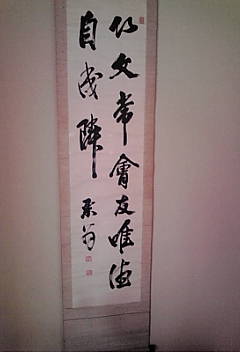 以文常會友唯德
自成隣